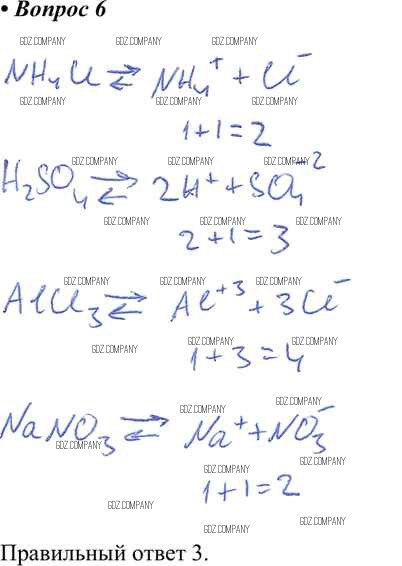 • Вопрос 6
GDZ.COMPANY GDZ.COMPANY GDZ.COMPANY
NH₄Cl ⇄ NH₄⁺ + Cl⁻
GDZ.COMPANY GDZ.COMPANY GDZ.COMPANY
1+1=2
GDZ.COMPANY GDZ.COMPANY GDZ.COMPANY
H₂SO₄ ⇄ 2H⁺ + SO₄⁻²
GDZ.COMPANY GDZ.COMPANY GDZ.COMPANY
2+1=3
GDZ.COMPANY GDZ.COMPANY GDZ.COMPANY
AlCl₃ ⇄ Al⁺³ + 3Cl⁻
GDZ.COMPANY GDZ.COMPANY GDZ.COMPANY
1+3=4
GDZ.COMPANY GDZ.COMPANY
NaNO₃ ⇄ Na⁺ + NO₃⁻
GDZ.COMPANY GDZ.COMPANY GDZ.COMPANY
1+1=2
GDZ.COMPANY GDZ.COMPANY GDZ.COMPANY
Правильный ответ 3.